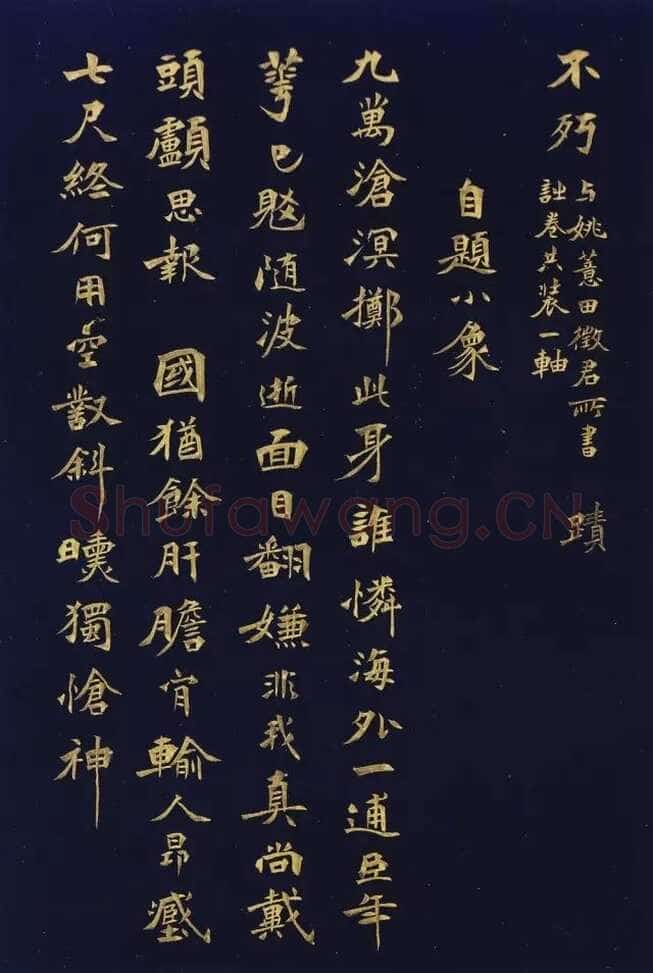 不朽
与姚薏田徵君所書 蹟
卷共裝一軸
自題小象
九萬滄溟擲此身誰憐海外一逋臣年
華已随波逝面目翻嫌非我真尚戴
頭顱思報 國猶餘肝膽肯輸人昂藏
七尺終何用空對斜曛獨愴神
Shufawang.CN